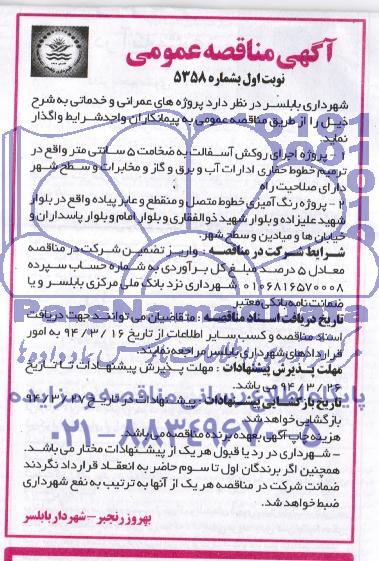 آگهی مناقصه عمومی
نوبت اول بشماره ۵۳۵۸
شهرداری بابلسر در نظر دارد پروژه های عمرانی و خدماتی به شرح
ذیل را از طریق مناقصه عمومی به پیمانکاران واجد شرایط واگذار
نماید
۱ - پروژه اجرای روکش آسفالت به ضخامت ۵ سانتی متر واقع در
ترمیم خطوط حفاری ادارات آب و برق و گاز و مخابرات و سطح شهر
دارای صلاحیت راه
۲ - پروژه رنگ آمیزی خطوط متصل و منقطع و عابر پیاده واقع در بلوار
شهید علیزاده و بلوار شهید ذوالفقاری و بلوار امام و بلوار پاسداران و
خیابان ها و میادین و سطح شهر.
شرایط شرکت در مناقصه : واریز تضمین شرکت در مناقصه
معادل ۵ درصد مبلغ کل برآوردی به شماره حساب سپرده
۰۱۰۶۸۱۶۵۷۰۰۰۸ شهرداری نزد بانک ملی مرکزی بابلسر و یا
ضمانت نامه بانکی معتبر
تاریخ دریافت اسناد مناقصه : متقاضیان می توانند جهت دریافت
اسناد مناقصه و کسب سایر اطلاعات از تاریخ ۹۴/۳/۱۶ به امور
قراردادهای شهرداری بابلسر مراجعه نمایند.
مهلت پذیرش پیشنهادات : مهلت پذیرش پیشنهادات تا تاریخ
۹۴/۳/۲۶ می باشد.
تاریخ بازگشایی پیشنهادات : پیشنهادات در تاریخ ۹۴/۳/۲۷
بازگشایی خواهد شد.
هزینه چاپ آگهی بعهده برنده مناقصه می باشد.
- شهرداری در رد یا قبول هر یک از پیشنهادات مختار می باشد.
همچنین اگر برندگان اول تا سوم حاضر به انعقاد قرارداد نگردند
ضمانت شرکت در مناقصه هر یک از آنها به ترتیب به نفع شهرداری
ضبط خواهد شد.
بهروز رنجبر - شهردار بابلسر
ParsNamadData
پایگاه اطلاع رسانی مناقصه و مزایده
۰۲۱-۸۸۳۴۹۶۷۰